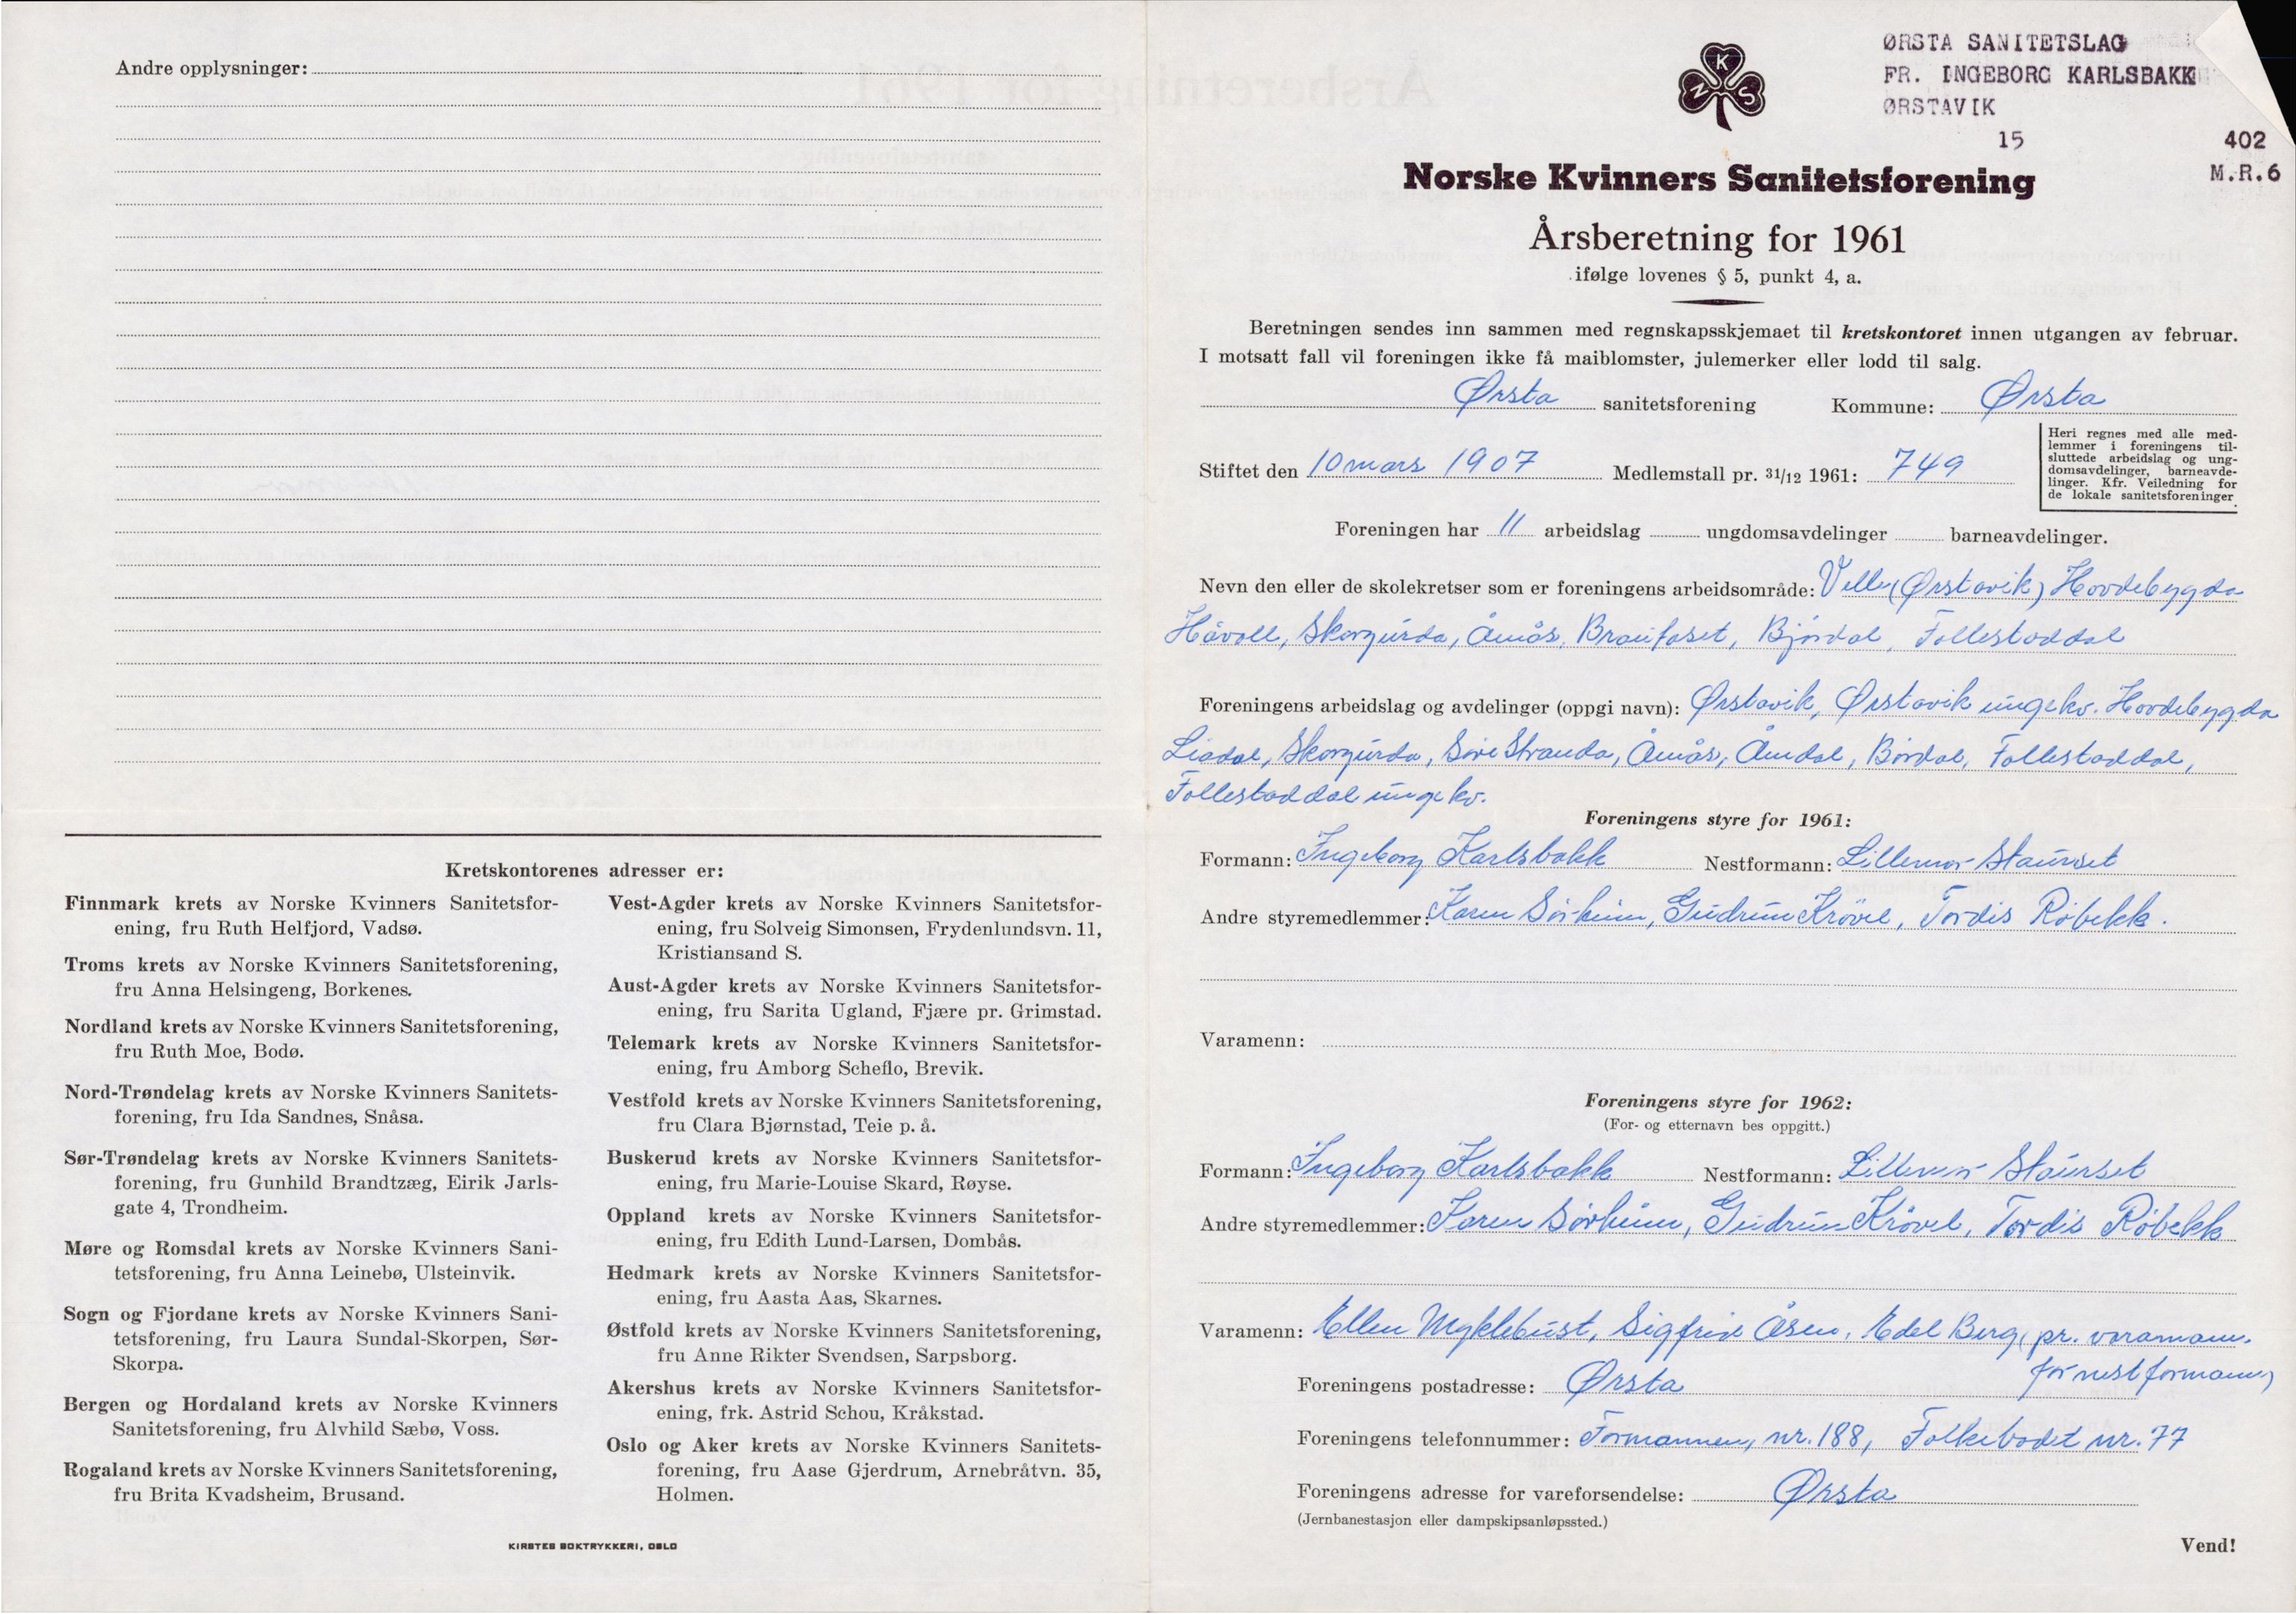 Andre opplysninger:
Kretskontorenes adresser er:
Finnmark krets av Norske Kvinners Sanitetsfor-
ening, fru Ruth Helfjord, Vadsø.
Troms krets av Norske Kvinners Sanitetsforening,
fru Anna Helsingeng, Borkenes.
Nordland krets av Norske Kvinners Sanitetsforening,
fru Ruth Moe, Bodø.
Nord-Trøndelag krets av Norske Kvinners Sanitets-
forening, fru Ida Sandnes, Snåsa.
Sør-Trøndelag krets av Norske Kvinners Sanitets-
forening, fru Gunhild Brandtzæg, Eirik Jarls-
gate 4, Trondheim.
Møre og Romsdal krets av Norske Kvinners Sani-
tetsforening, fru Anna Leinebø, Ulsteinvik.
Sogn og Fjordane krets av Norske Kvinners Sani-
tetsforening, fru Laura Sundal-Skorpen, Sør-
Skorpa.
Bergen og Hordaland krets av Norske Kvinners
Sanitetsforening, fru Alvhild Sæbø, Voss.
Rogaland krets av Norske Kvinners Sanitetsforening,
fru Brita Kvadsheim, Brusand.
Vest-Agder krets av Norske Kvinners Sanitetsfor-
ening, fru Solveig Simonsen, Frydenlundsvn. 11,
Kristiansand S.
Aust-Agder krets av Norske Kvinners Sanitetsfor-
ening, fru Sarita Ugland, Fjære pr. Grimstad.
Telemark krets av Norske Kvinners Sanitetsfor-
ening, fru Amborg Scheflo, Brevik.
Vestfold krets av Norske Kvinners Sanitetsforening,
fru Clara Bjørnstad, Teie p. å.
Buskerud krets av Norske Kvinners Sanitetsfor-
ening, fru Marie-Louise Skard, Røyse.
Oppland krets av Norske Kvinners Sanitetsfor-
ening, fru Edith Lund-Larsen, Dombås.
Hedmark krets av Norske Kvinners Sanitetsfor-
ening, fru Aasta Aas, Skarnes.
Østfold krets av Norske Kvinners Sanitetsforening,
fru Anne Rikter Svendsen, Sarpsborg.
Akershus krets av Norske Kvinners Sanitetsfor-
ening, frk. Astrid Schou, Kråkstad.
Oslo og Aker krets av Norske Kvinners Sanitets-
forening, fru Aase Gjerdrum, Arnebråtvn. 35,
Holmen.
KIRSTES BOKTRYKKERI, OSLO
NKS
ØRSTA SANITETSLAG
FR. INGEBORG KARLSBAKK
ØRSTAVIK
15 402
M.R.6
Norske Kvinners Sanitetsforening
Årsberetning for 1961
ifølge lovenes § 5, punkt 4, a.
Beretningen sendes inn sammen med regnskapsskjemaet til kretskontoret innen utgangen av februar.
I motsatt fall vil foreningen ikke få maiblomster, julemerker eller lodd til salg.
Ørsta sanitetsforening Kommune: Ørsta
Stiftet den 10 mars 1907 Medlemstall pr. 31/12 1961: 749
Heri regnes med alle med-
lemmer i foreningens til-
sluttede arbeidslag og ung-
domsavdelinger, barneavde-
linger. Kfr. Veiledning for
de lokale sanitetsforeninger.
Foreningen har 11 arbeidslag ungdomsavdelinger barneavdelinger.
Nevn den eller de skolekretser som er foreningens arbeidsområde: Velle (Ørstavik) Hovdebygda
Håvoll, Skorgurda, Åmås, Brautaset, Bjørdal, Follestaddal
Foreningens arbeidslag og avdelinger (oppgi navn): Ørstavik, Ørstavik unge kv. Hovdebygda
Liadal, Skorgurda, Søre Stranda, Åmås, Åmdal, Børdal, Follestaddal,
Follestaddal unge kv.
Foreningens styre for 1961:
Formann: Ingeborg Karlsbakk Nestformann: Lillemor Staurset
Andre styremedlemmer: Karen Sørheim, Gudrun Krøvel, Tordis Robekk.
Varamenn:
Foreningens styre for 1962:
(For- og etternavn bes oppgitt.)
Formann: Ingeborg Karlsbakk Nestformann: Lillemor Staurset
Andre styremedlemmer: Karen Sørheim, Gudrun Krøvel, Tordis Robekk
Varamenn: Ellen Myklebust, Sigfrid Åsen, Edel Berg, (pr. varamann.
for nestformann)
Foreningens postadresse: Ørsta
Foreningens telefonnummer: Formannen, nr. 188, Folkebadet nr. 77
Foreningens adresse for vareforsendelse: Ørsta
(Jernbanestasjon eller dampskipsanløpssted.)
Vend!